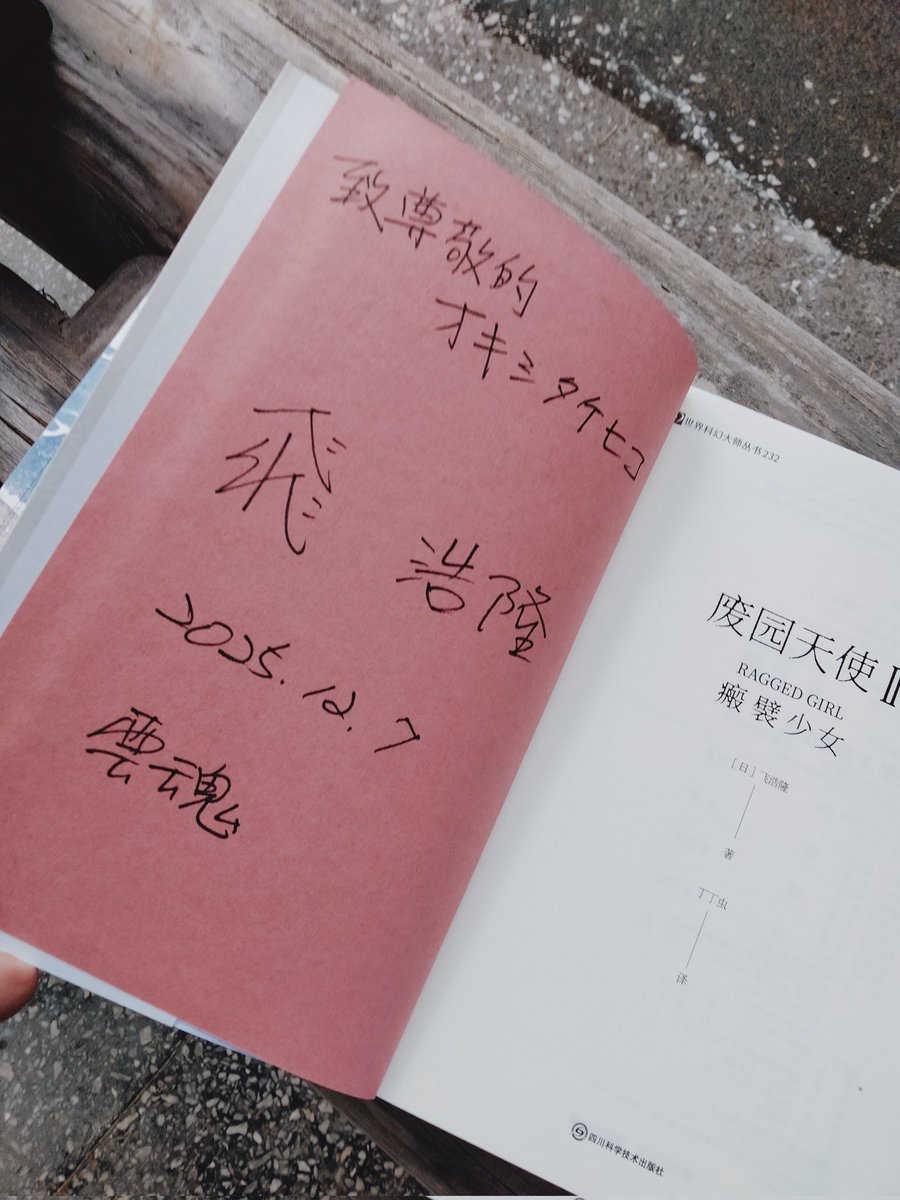 致尊敬的
オキシタケヒコ
飛
浩隆
2025.12.7
雲魂
世界科幻大师丛书 232
废园天使 II
RAGGED GIRL
瘢襞少女
［日］飞浩隆
著
丁丁虫
译
四川科学技术出版社